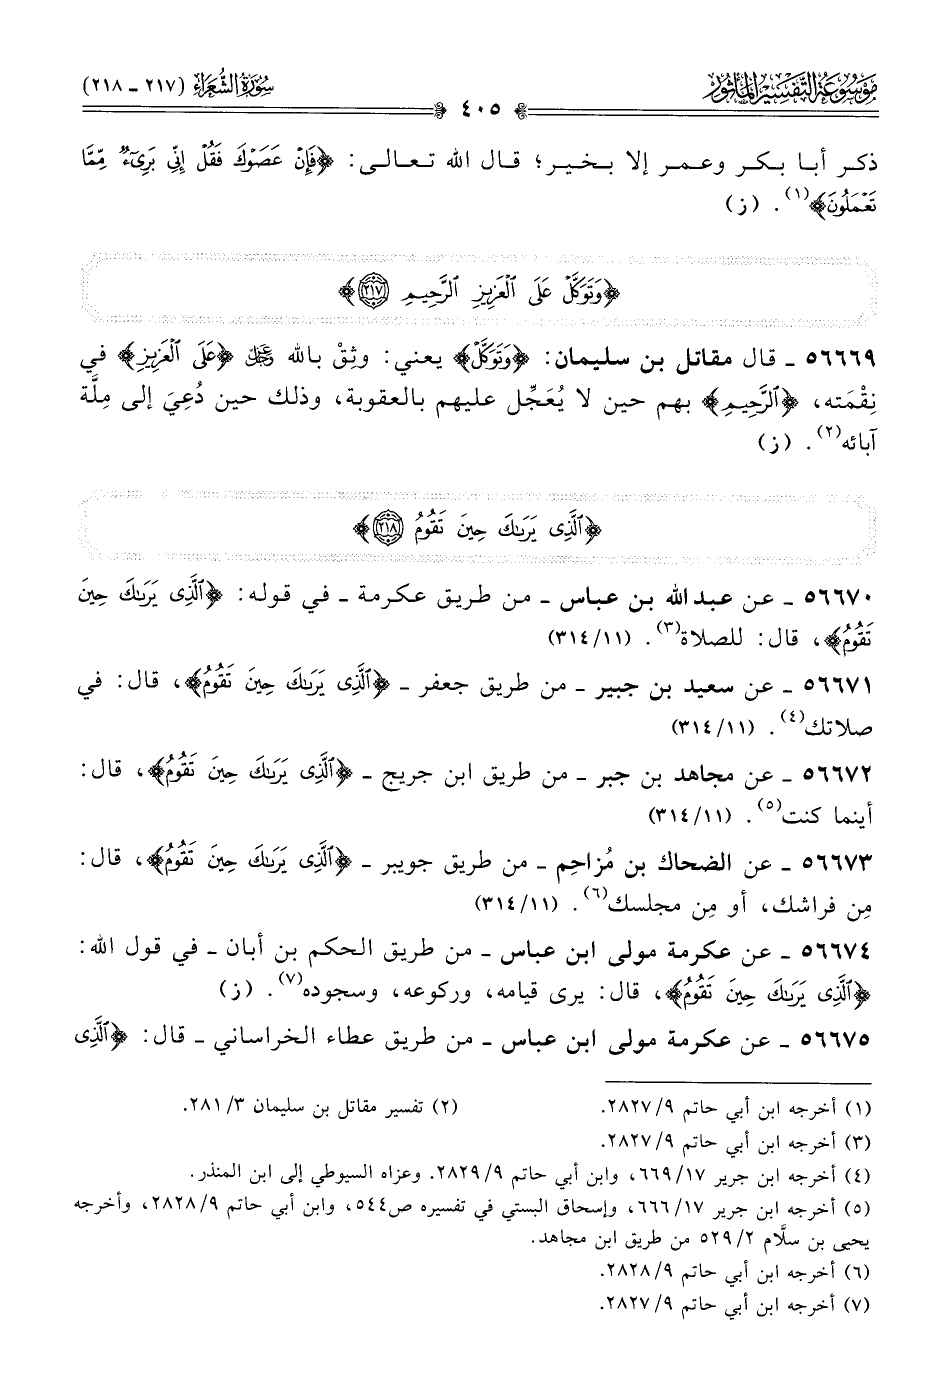 موسوعة التفسير المأثور
سورة الشعراء (٢١٧ - ٢١٨)
٤٠٥
ذكر أبا بكر وعمر إلا بخير؛ قال الله تعالى: ﴿فَإِنْ عَصَوْكَ فَقُلْ إِنِّي بَرِيءٌ مِّمَّا
تَعْمَلُونَ﴾(١). (ز)
﴿وَتَوَكَّلْ عَلَى ٱلْعَزِيزِ ٱلرَّحِيمِ ٢١٧﴾
٥٦٦٦٩ - قال مقاتل بن سليمان: ﴿وَتَوَكَّلْ﴾ يعني: وثِقْ بالله ﷿ ﴿عَلَى ٱلْعَزِيزِ﴾ في
نِقْمَته، ﴿ٱلرَّحِيمِ﴾ بهم حين لا يُعَجِّل عليهم بالعقوبة، وذلك حين دُعِيَ إلى مِلَّة
آبائه(٢). (ز)
﴿ٱلَّذِى يَرَىٰكَ حِينَ تَقُومُ ٢١٨﴾
٥٦٦٧٠ - عن عبد الله بن عباس - من طريق عكرمة - في قوله: ﴿ٱلَّذِى يَرَىٰكَ حِينَ
تَقُومُ﴾، قال: للصلاة(٣). (٣١٤/١١)
٥٦٦٧١ - عن سعيد بن جبير - من طريق جعفر - ﴿ٱلَّذِى يَرَىٰكَ حِينَ تَقُومُ﴾، قال: في
صلاتك(٤). (٣١٤/١١)
٥٦٦٧٢ - عن مجاهد بن جبر - من طريق ابن جريج - ﴿ٱلَّذِى يَرَىٰكَ حِينَ تَقُومُ﴾، قال:
أينما كنت(٥). (٣١٤/١١)
٥٦٦٧٣ - عن الضحاك بن مُزاحِم - من طريق جويبر - ﴿ٱلَّذِى يَرَىٰكَ حِينَ تَقُومُ﴾، قال:
مِن فراشك، أو مِن مجلسك(٦). (٣١٤/١١)
٥٦٦٧٤ - عن عكرمة مولى ابن عباس - من طريق الحكم بن أبان - في قول الله:
﴿ٱلَّذِى يَرَىٰكَ حِينَ تَقُومُ﴾، قال: يرى قيامه، وركوعه، وسجوده(٧). (ز)
٥٦٦٧٥ - عن عكرمة مولى ابن عباس - من طريق عطاء الخراساني - قال: ﴿ٱلَّذِى
(١) أخرجه ابن أبي حاتم ٩/ ٢٨٢٧. (٢) تفسير مقاتل بن سليمان ٣/ ٢٨١.
(٣) أخرجه ابن أبي حاتم ٩/ ٢٨٢٧.
(٤) أخرجه ابن جرير ١٧/ ٦٦٩، وابن أبي حاتم ٩/ ٢٨٢٩. وعزاه السيوطي إلى ابن المنذر.
(٥) أخرجه ابن جرير ١٧/ ٦٦٦، وإسحاق البستي في تفسيره ص٥٤٤، وابن أبي حاتم ٩/ ٢٨٢٨، وأخرجه
يحيى بن سلَّام ٢/ ٥٢٩ من طريق ابن مجاهد.
(٦) أخرجه ابن أبي حاتم ٩/ ٢٨٢٨.
(٧) أخرجه ابن أبي حاتم ٩/ ٢٨٢٧.